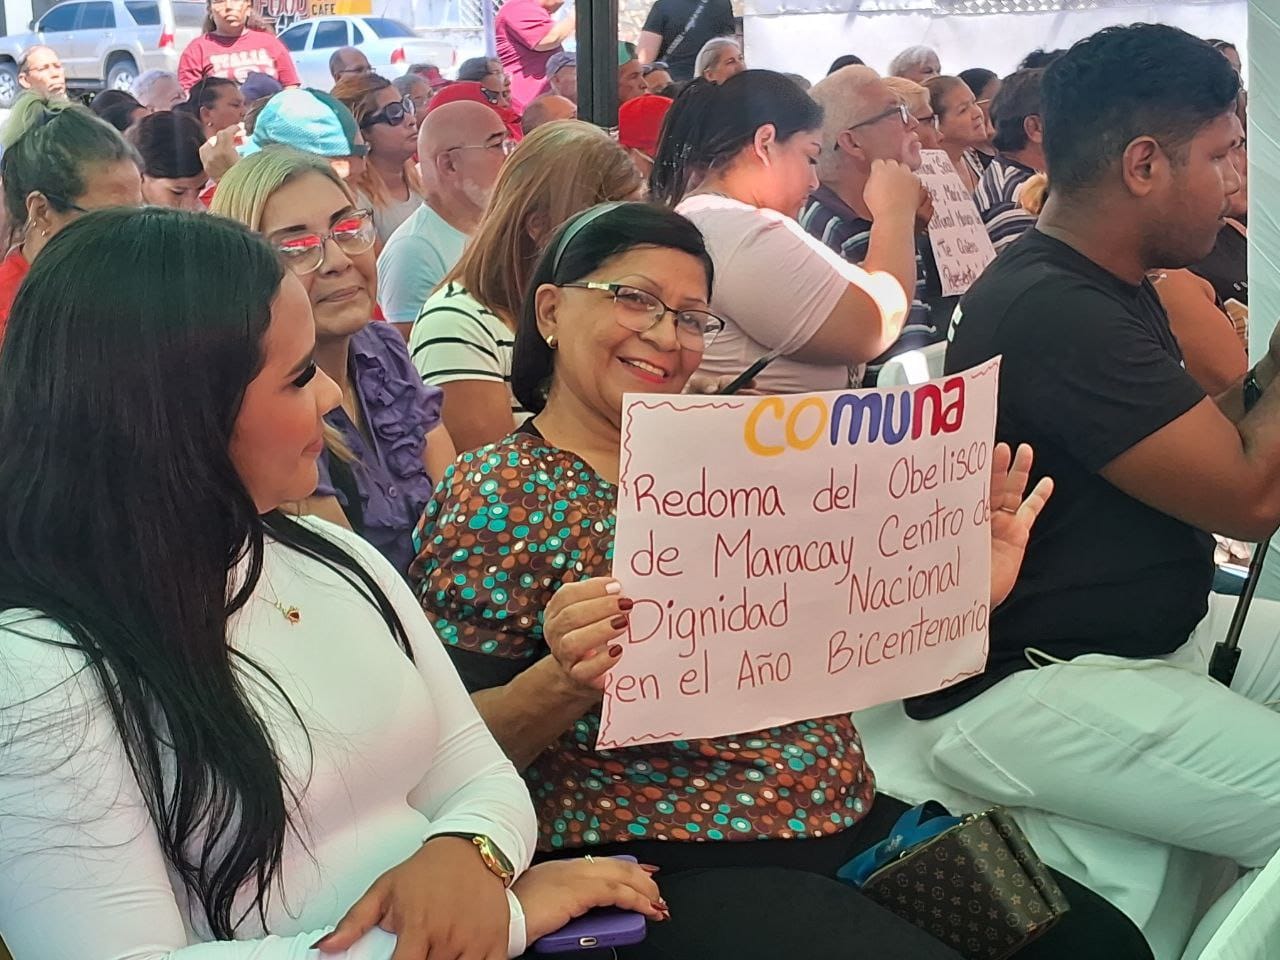 CAFE
ITALIA
COMUNA
Redoma del Obelisco
de Maracay Centro de
Dignidad Nacional
en el Año Bicentenario
Te Quiero